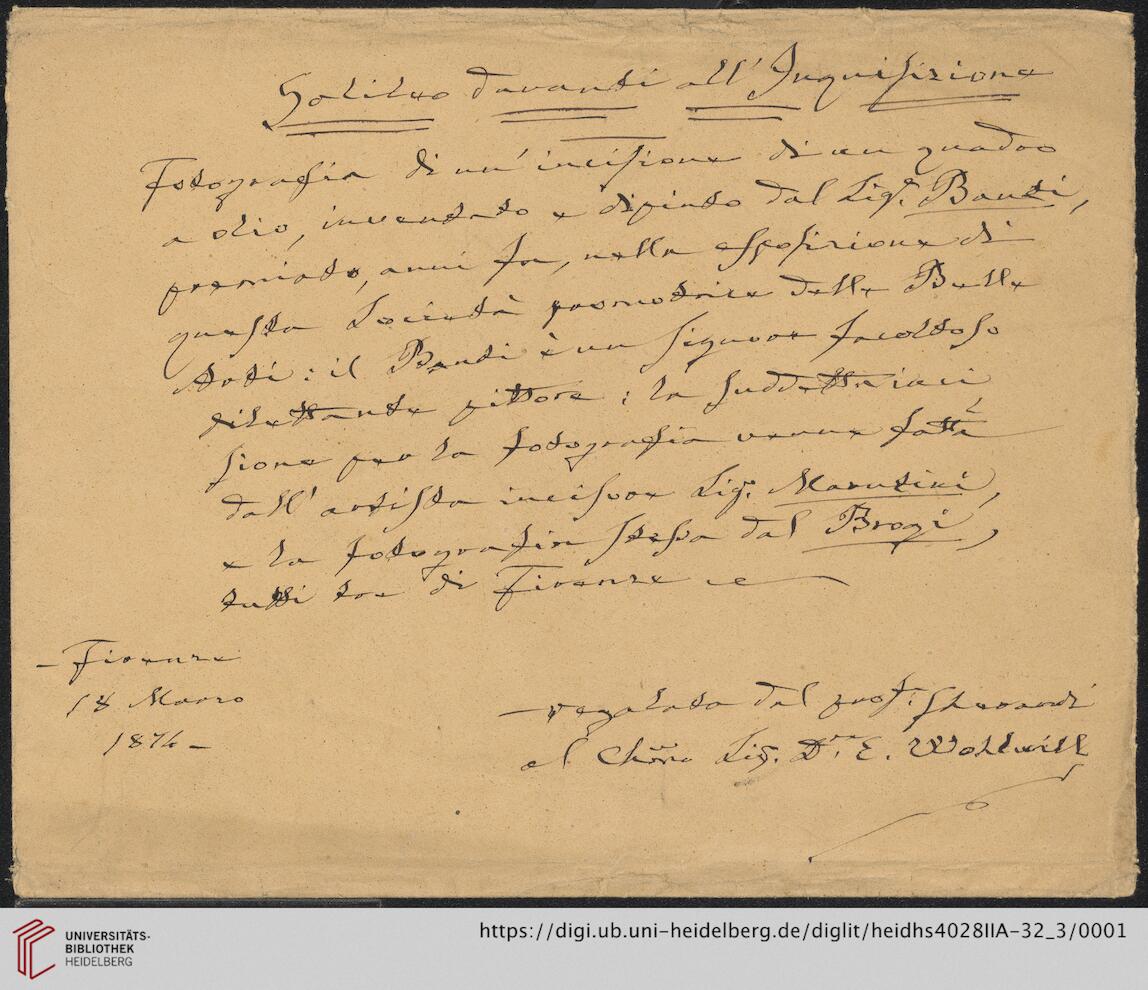 Galileo davanti all'Inquisizione
Fotografia di un' incisione di un quadro
a olio, inventato e dipinto dal Sigr. Banti,
premiato, anni fa, nella esposizione di
questa Società promotrice delle Belle
Arti: il Banti è un signore facoltoso
dilettante pittore: la suddetta inci
sione per la fotografia venne fatta
dall' artista incisore Sig.
e la fotografia stessa dal Brogi,
tutti tre di Firenze
– Firenze
18 Marzo
1874 –
– regalata dal prof.
al Sig. Dre. E. Wohlwill
UNIVERSITÄTS-
BIBLIOTHEK
HEIDELBERG
https://digi.ub.uni-heidelberg.de/diglit/heidhs4028IIA-32_3/0001